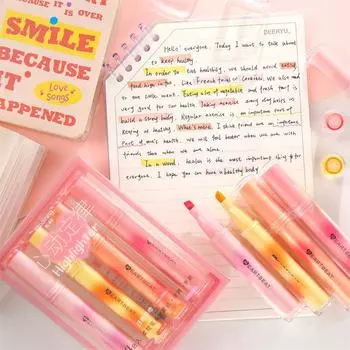 BECAUSE IT IS OVER
SMILE
BECAUSE
IT
Love
Songs
HAPPENED
DEERYU
Hello! everyone. Today I want to talk about
to keep healthy
In order to eat healthily, we should avoid eating
food high in fat like French fries or cookies. We also
eat too little meat. Eating a lot of vegetables and fresh fruit is
very good for our health. Taking exercise every day helps us
build a strong body. Regular exercise is an important
keeping us healthy. What's more, I think friends are an important
Part of men's health. We will feel better when we are with
friends than when we are alone.
In a word, health is the most important thing for
everyone. I hope you can have a healthy body.
Highlighter
HEARTBEAT
HEARTBEAT
HEARTBEAT
HEARTBEAT